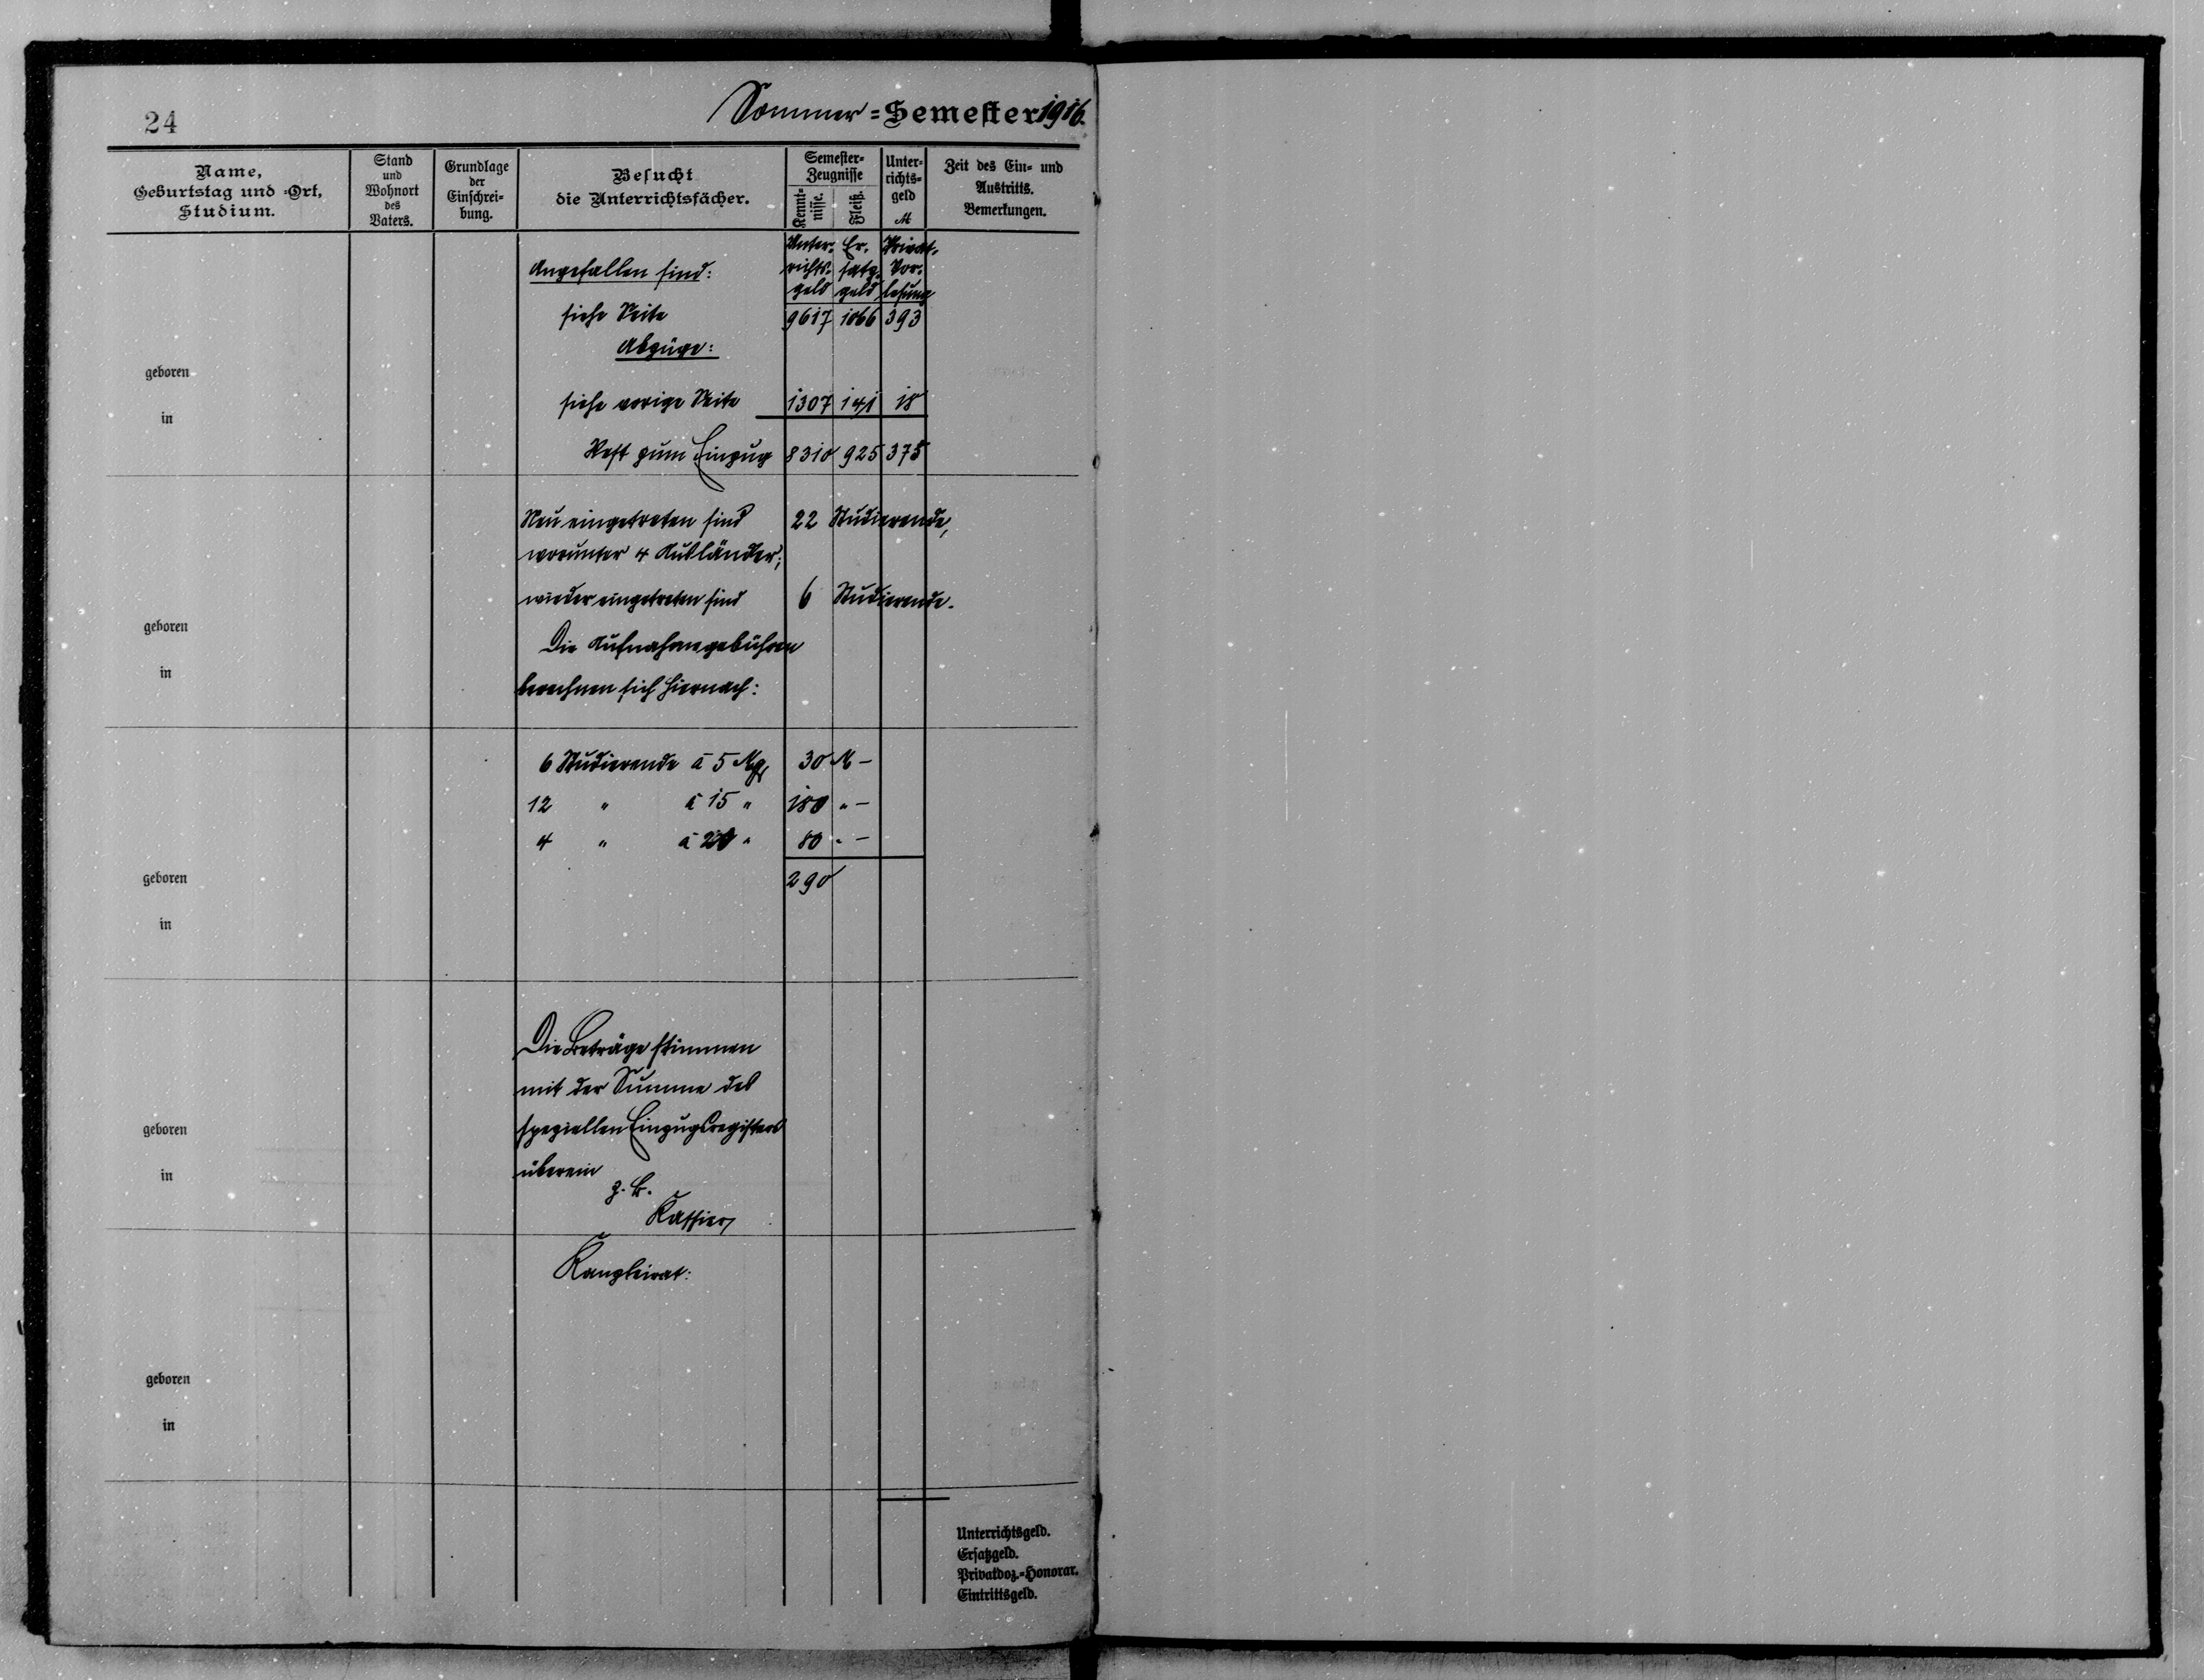 24
Sommer=Semester 1916.
Name,
Geburtstag und =Ort,
Studium.
Stand
und
Wohnort
des
Vaters.
Grundlage
der
Einschrei=
bung.
Besucht
die Unterrichtsfächer.
Semester=
Zeugnisse
Kennt=
nisse.
Fleiß.
Unter=
richts=
geld
M
Zeit des Ein= und
Austritts.
Bemerkungen.
Unter- Er- Privat-
Angefallen sind: richts- satz- Vor-
geld geld lesung
siehe Seite 9617 1066 393
Abzüge:
geboren
siehe vorige Seite 1307 141 18
in
Rest zum Einzug 8310 925 375
Neu eingetreten sind 22 Studierende,
worunter 4 Ausländer;
wieder eingetreten sind 6 Studierende.
geboren
Die Aufnahmegebühren
in
berechnen sich hiernach:
6 Studierende à 5 M 30 M –
12 " à 15 " 180 " –
4 " à 20 " 80 " –
geboren
290
in
Die Beträge stimmen
mit der Summe des
speziellen Einzugsregisters
geboren
überein
in
z. B.
Kassier
Kanzleirat:
geboren
in
Unterrichtsgeld.
Ersatzgeld.
Privatdoz.=Honorar.
Eintrittsgeld.